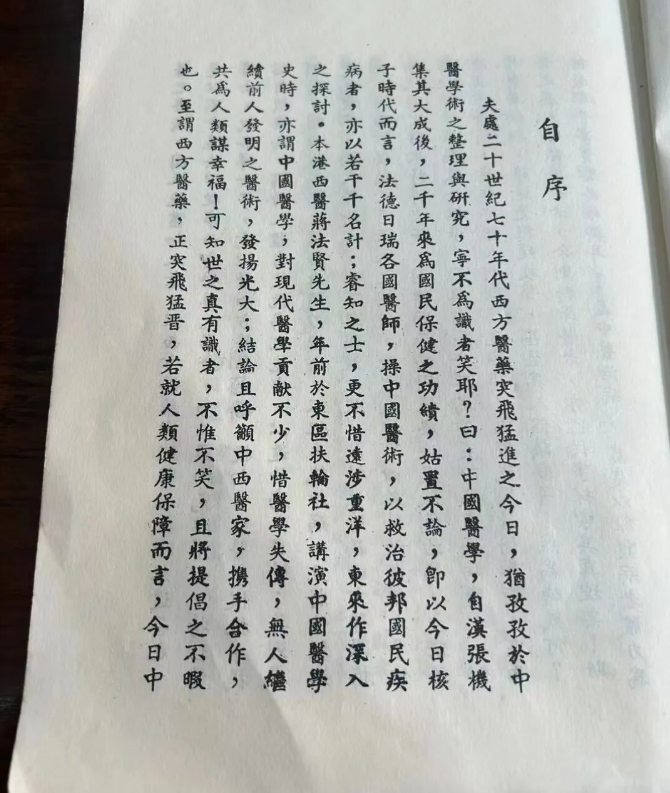 自序
夫處二十世紀七十年代西方醫藥突飛猛進之今日，猶孜孜於中
醫學術之整理與研究，寧不為識者笑耶？曰：中國醫學，自漢張機
集其大成後，二千年來為國民保健之功績，姑置不論，即以今日核
子時代而言，法德日瑞各國醫師，操中國醫術，以救治彼邦國民疾
病者，亦以若干千名計；睿知之士，更不惜遠涉重洋，東來作深入
之探討。本港西醫蔣法賢先生，年前於東區扶輪社，講演中國醫學
史時，亦謂中國醫學，對現代醫學貢獻不少，惜醫學失傳，無人繼
續前人發明之醫術，發揚光大；結論且呼籲中西醫家，攜手合作，
共為人類謀幸福！可知世之真有識者，不惟不笑，且將提倡之不暇
也。至謂西方醫藥，正突飛猛晋，若就人類健康保障而言，今日中